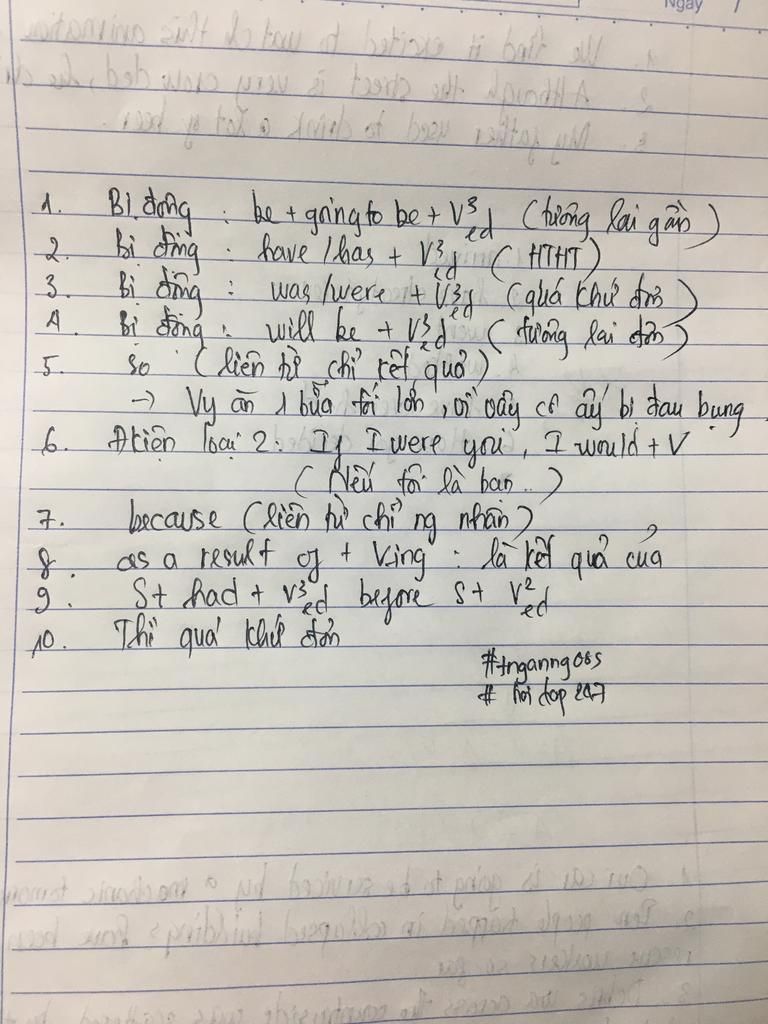 Ngày
1. Bị động : be + going to be + V3 ed (tương lai gần)
2. Bị động : have / has + V3 ed ( HTHT )
3. Bị động : was/were + V3 ed (quá khứ đơn)
4. Bị động : will be + V3 ed (tương lai đơn)
5. so (liên từ chỉ kết quả)
→ Vy ăn 1 bữa tối lớn, vì vậy cô ấy bị đau bụng
6. Đkiện loại 2: If I were you, I would + V
(Nếu tôi là bạn ..)
7. because (liên từ chỉ ng nhân)
8. as a result of + Ving : là kết quả của
9. S + had + V3 ed before S + V2 ed
10. Thì quá khứ đơn
# hoi dap 247